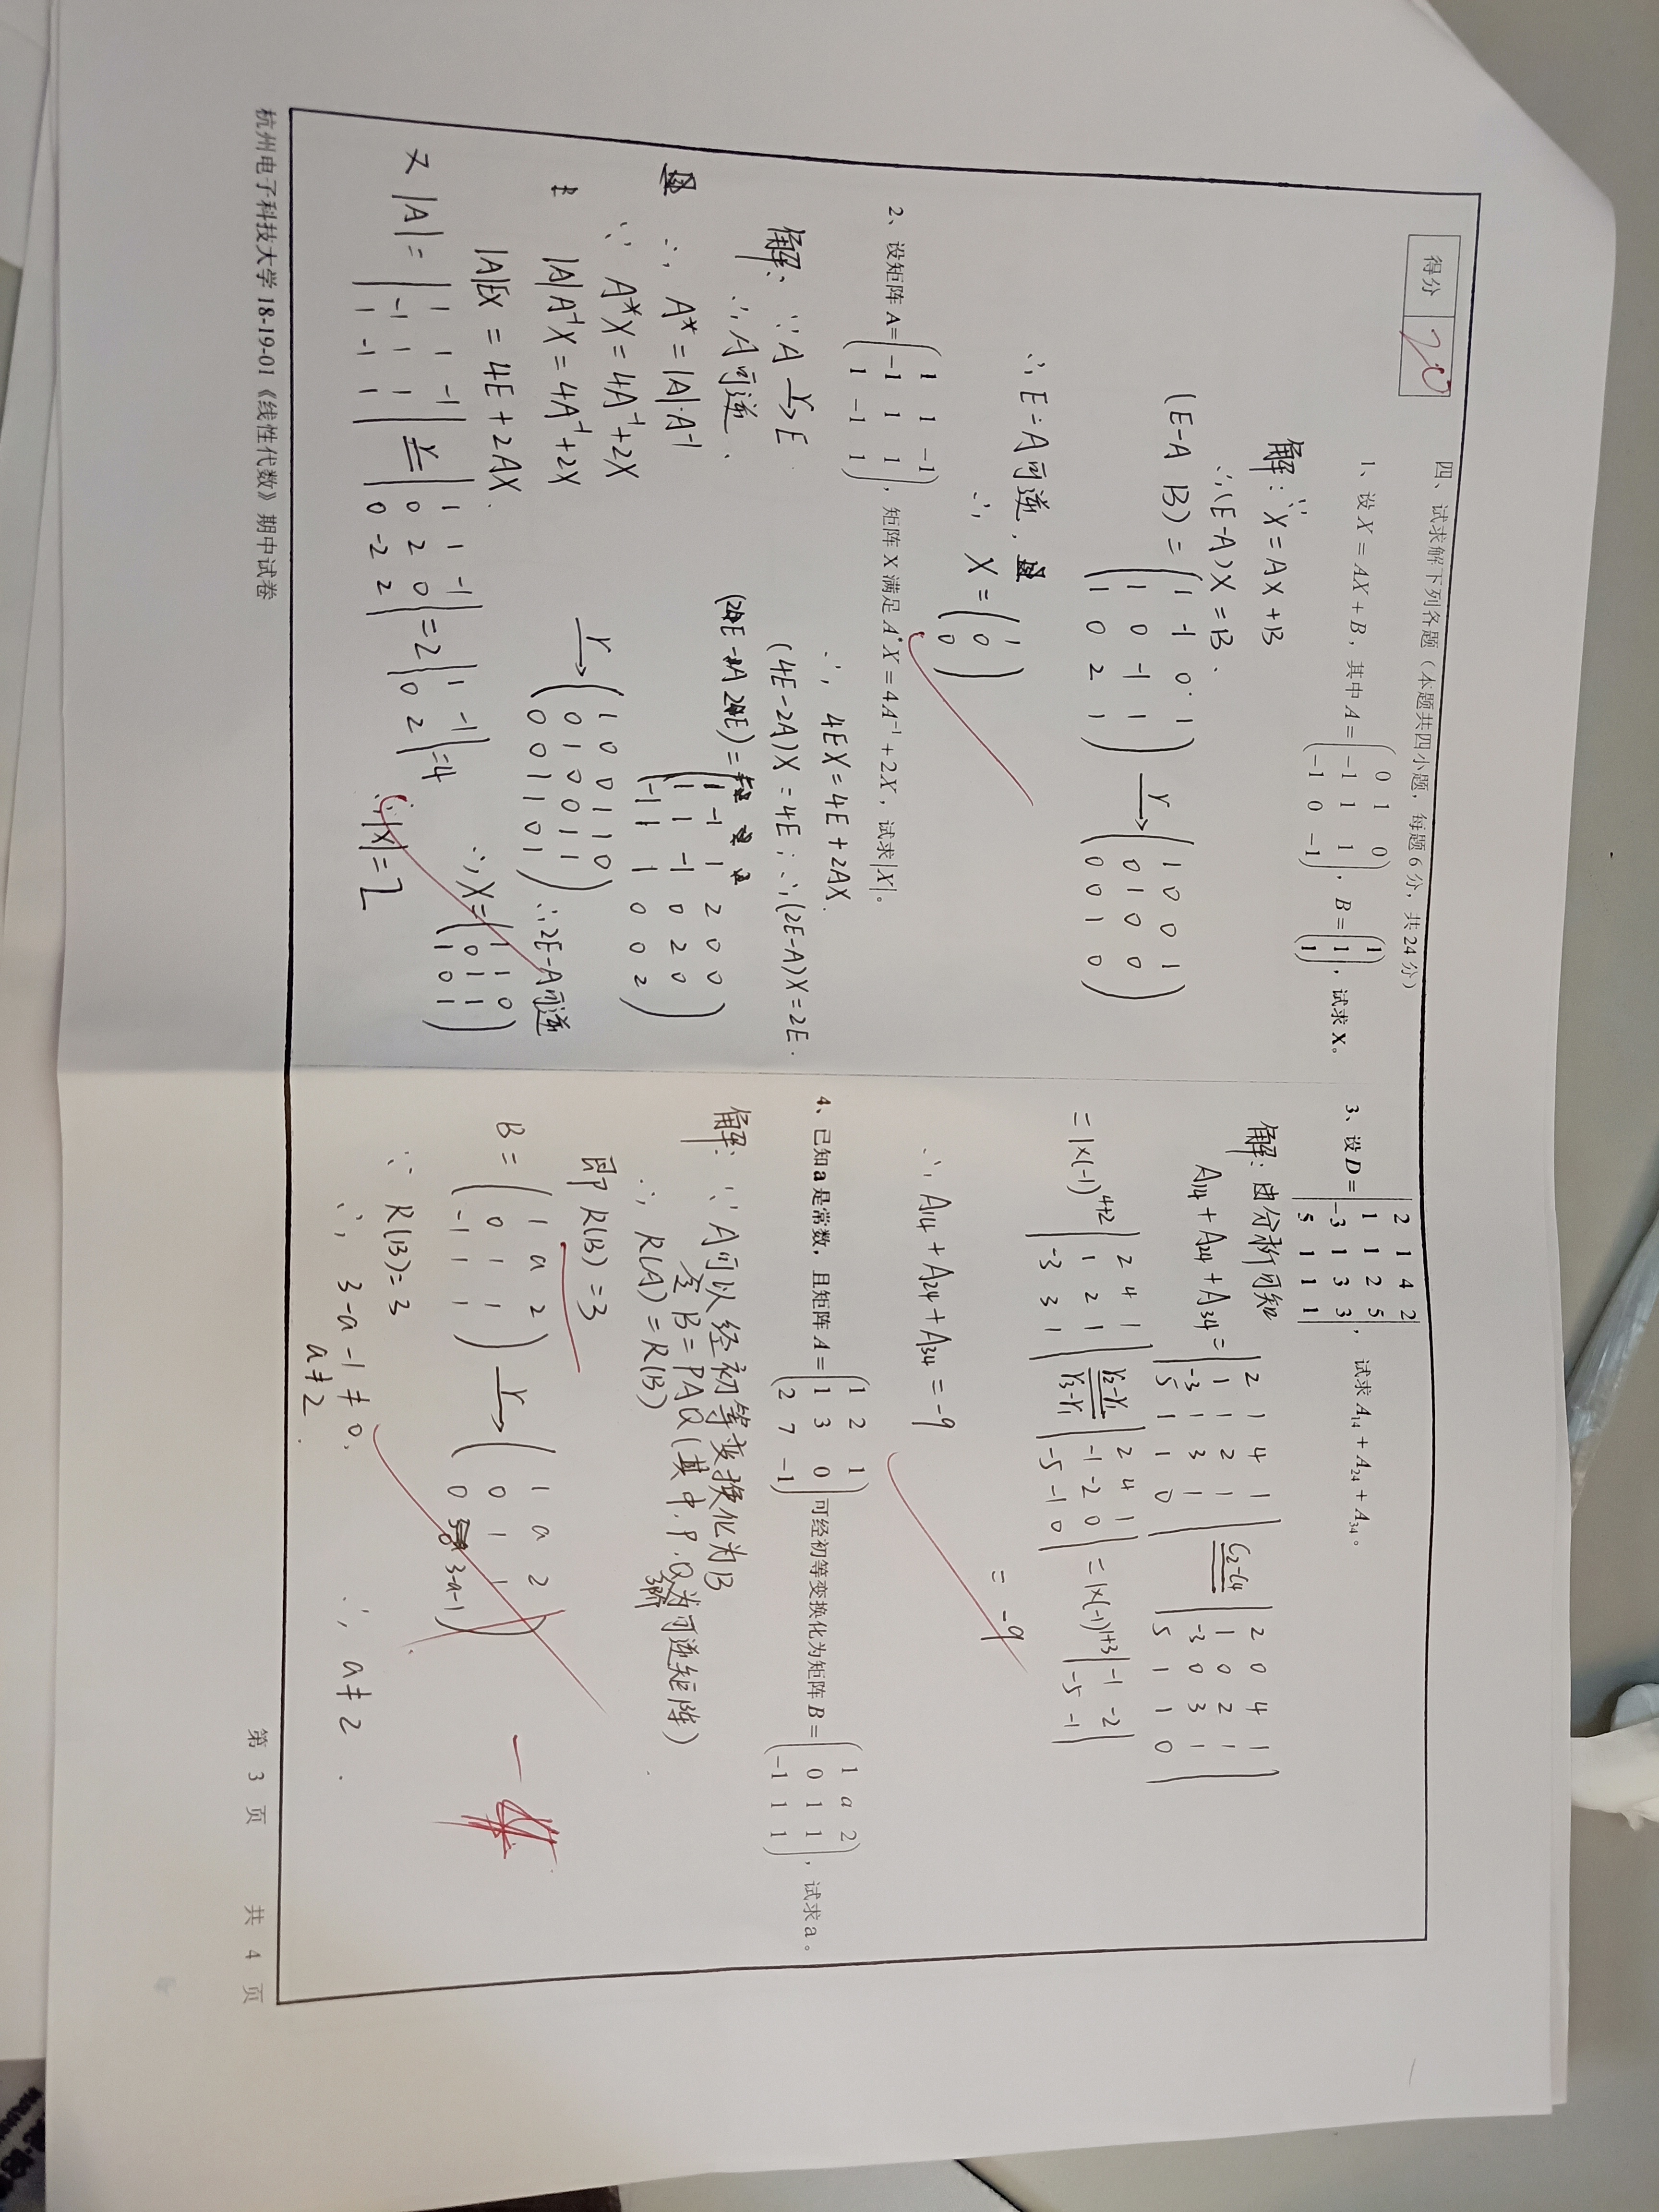 得分 20
四、试求解下列各题（本题共四小题，每题 6 分，共 24 分）
1、设 X = AX + B，其中 A = (0 1 0; -1 1 1; -1 0 -1)，B = (1; 1; 1)，试求 X。
解：∵X = AX + B
∴(E-A)X = B .
(E-A B) = (1 -1 0 1; 1 0 -1 1; 1 0 2 1) r→ (1 0 0 1; 0 1 0 0; 0 0 1 0)
∴ E-A可逆,
∴ X = (1; 0; 0)
2、设矩阵 A= (1 1 -1; -1 1 1; 1 -1 1)，矩阵 X 满足 A*X = 4A⁻¹ + 2X，试求|X|。
解: ∵A r→ E
∴A可逆.
∴ A* = |A|·A⁻¹
∵ A*X = 4A⁻¹+2X
|A|A⁻¹X = 4A⁻¹+2X
|A|EX = 4E + 2AX.
又 |A| = |1 1 -1; -1 1 1; 1 -1 1| r= |1 1 -1; 0 2 0; 0 -2 2| = 2|1 -1; 0 2| = 4
∴ 4EX = 4E + 2AX.
(4E-2A)X = 4E; ∴(2E-A)X = 2E.
(2E-A 2E) = (1 -1 1 2 0 0; 1 1 -1 0 2 0; -1 1 1 0 0 2)
r→ (1 0 0 1 1 0; 0 1 0 0 1 1; 0 0 1 1 0 1)
∴2E-A可逆
∴X = (1 1 0; 0 1 1; 1 0 1)
∴|X| = 2
3、设 D = |2 1 4 2; 1 1 2 5; -3 1 3 3; 5 1 1 1|， 试求 A₁₄ + A₂₄ + A₃₄。
解: 由分析可知
A₁₄ + A₂₄ + A₃₄ = |2 1 4 1; 1 1 2 1; -3 1 3 1; 5 1 1 0| C₂-C₄ = |2 0 4 1; 1 0 2 1; -3 0 3 1; 5 1 1 0|
= 1×(-1)⁴⁺² |2 4 1; 1 2 1; -3 3 1| r₂-r₁ r₃-r₁ = |2 4 1; -1 -2 0; -5 -1 0| = 1×(-1)¹⁺³ |-1 -2; -5 -1|
= -9
∴ A₁₄ + A₂₄ + A₃₄ = -9
4、已知 a 是常数，且矩阵 A = (1 2 1; 1 3 0; 2 7 -1) 可经初等变换化为矩阵 B = (1 a 2; 0 1 1; -1 1 1)，试求 a。
解: ∵ A可以经初等变换化为B
令 B = PAQ (其中, P, Q为3阶可逆矩阵)
∴ R(A) = R(B)
即 R(B) = 3
B = (1 a 2; 0 1 1; -1 1 1) r→ (1 a 2; 0 1 1; 0 0 3-a-1)
∵ R(B) = 3
∴ 3-a-1 ≠ 0.
a ≠ 2 .
∴ a ≠ 2 .
杭州电子科技大学 18-19-01《线性代数》期中试卷
第 3 页 共 4 页